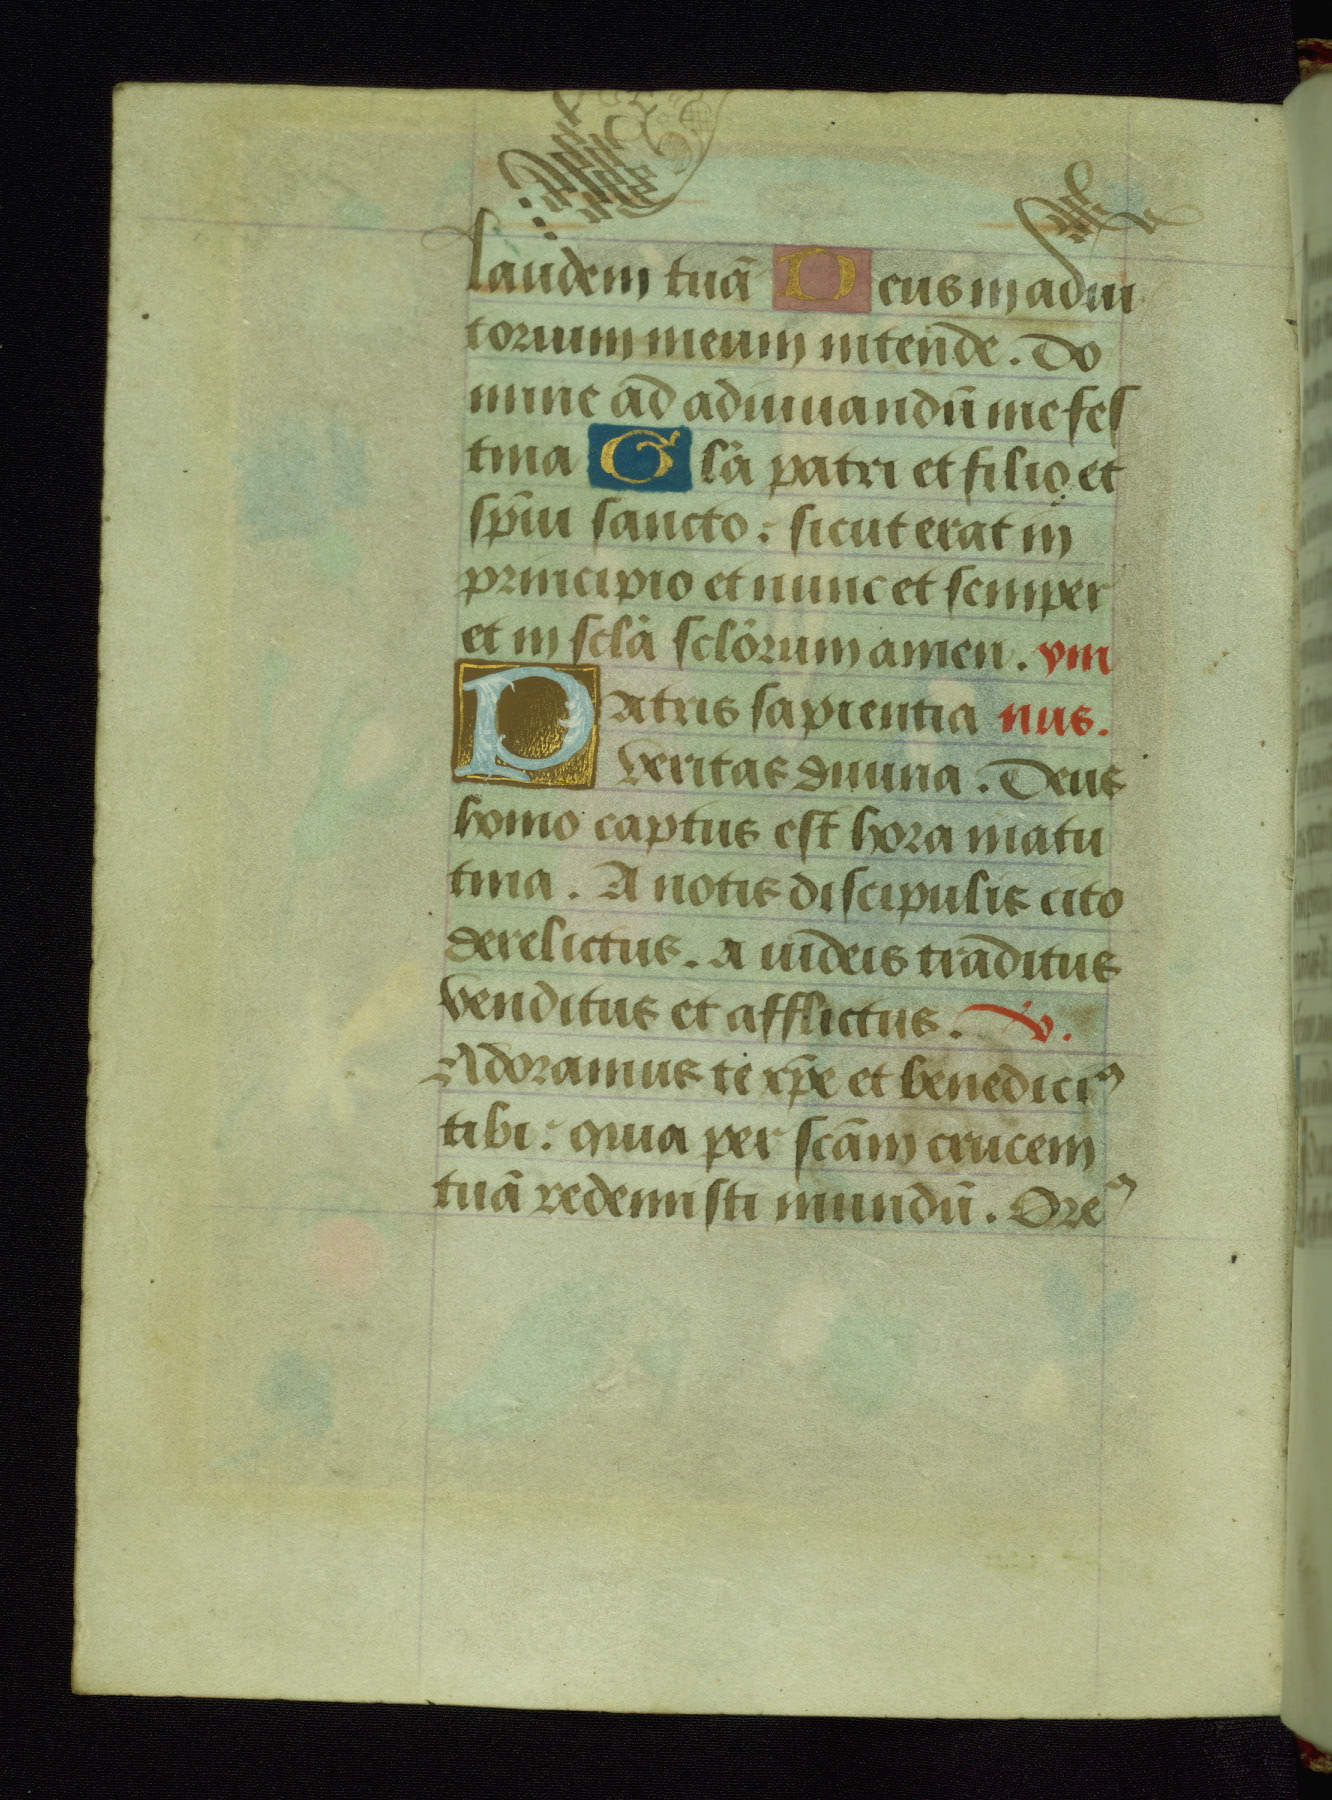 laudem tuā Deus in adiu
torium meum intende. Do
mine ad adiuuandū me fes
tina Glā patri et filio et
spūi sancto: sicut erat in
principio et nunc et semper
et in sclā sclōrum amen. ym
Patris sapientia nus.
veritas diuina. Deus
homo captus est hora matu
tina. A notis discipulis cito
derelictus. a iudeis traditus
venditus et afflictus. v.
Adoramus te xp̄e et benedicim9
tibi: quia per scām crucem
tuā redemisti mundū. Orem9